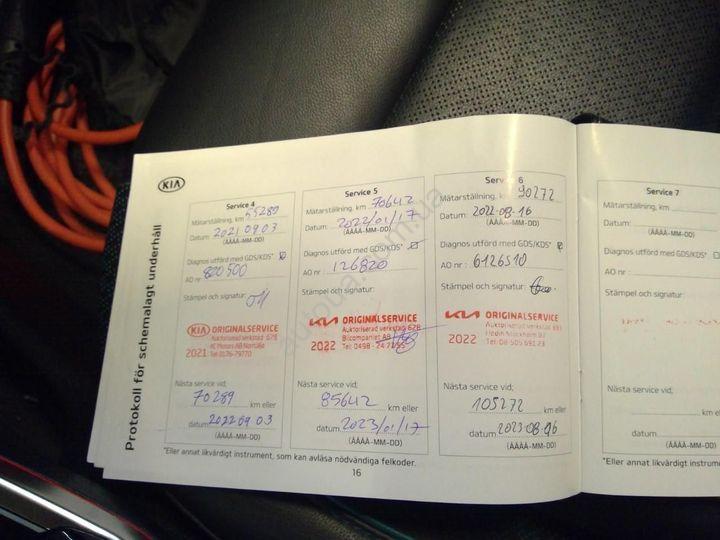 KIA
Protokoll för schemalagt underhåll
Service 4
Mätarställning, km 55289
Datum: 2021 09 03
(ÅÅÅÅ-MM-DD)
Diagnos utförd med GDS/KDS*
AO nr: 800500
Stämpel och signatur:
KIA ORIGINALSERVICE
Auktoriserad verkstad
2021 Tel 0176-79770
Nästa service vid;
70289 km eller
datum 2022 09 03
(ÅÅÅÅ-MM-DD)
Service 5
Mätarställning, km 70642
Datum: 2022/01/17
(ÅÅÅÅ-MM-DD)
Diagnos utförd med GDS/KDS*
AO nr: 126820
Stämpel och signatur:
KIA ORIGINALSERVICE
Auktoriserad verkstad 628
Bilcompaniet AB
2022 Tel: 0498 - 24
Nästa service vid;
85642 km eller
datum 2023/01/17
(ÅÅÅÅ-MM-DD)
Service 6
Mätarställning, km 90272
Datum: 2022-08-16
(ÅÅÅÅ-MM-DD)
Diagnos utförd med GDS/KDS*
AO nr: 6126510
Stämpel och signatur:
KIA ORIGINALSERVICE
Auktoriserad verkstad
2022 Tel: 08 505 691 23
Nästa service vid;
105272 km eller
datum 2023-08-16
(ÅÅÅÅ-MM-DD)
*Eller annat likvärdigt instrument, som kan avläsa nödvändiga felkoder.
16
Service 7
Mätarställning, km
Datum:
(ÅÅÅÅ-MM-DD)
Diagnos utförd med GDS/
AO nr:
Stämpel och signatur:
Nästa service vid;
km
datum
(ÅÅÅÅ-MM
*Eller annat likvärdigt instrume